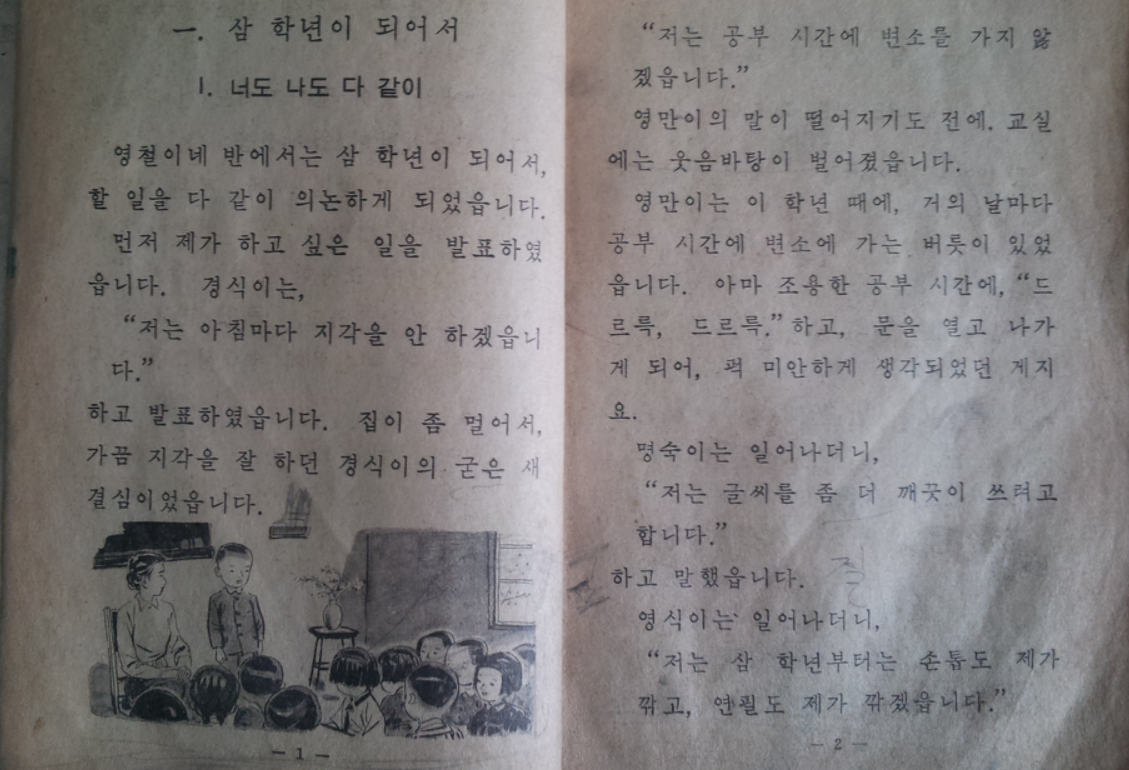 一. 삼 학년이 되어서
1. 너도 나도 다 같이
영철이네 반에서는 삼 학년이 되어서,
할 일을 다 같이 의논하게 되었읍니다.
먼저 제가 하고 싶은 일을 발표하였
읍니다. 경식이는,
“저는 아침마다 지각을 안 하겠읍니
다.”
하고 발표하였읍니다. 집이 좀 멀어서,
가끔 지각을 잘 하던 경식이의 굳은 새
결심이었읍니다.
— 1 —
“저는 공부 시간에 변소를 가지 않
겠읍니다.”
영만이의 말이 떨어지기도 전에. 교실
에는 웃음바탕이 벌어졌읍니다.
영만이는 이 학년 때에, 거의 날마다
공부 시간에 변소에 가는 버릇이 있었
읍니다. 아마 조용한 공부 시간에, “드
르륵, 드르륵.” 하고, 문을 열고 나가
게 되어, 퍽 미안하게 생각되었던 게지
요.
명숙이는 일어나더니,
“저는 글씨를 좀 더 깨끗이 쓰려고
합니다.”
하고 말했읍니다.
영식이는 일어나더니,
“저는 삼 학년부터는 손톱도 제가
깎고, 연필도 제가 깎겠읍니다.”
— 2 —